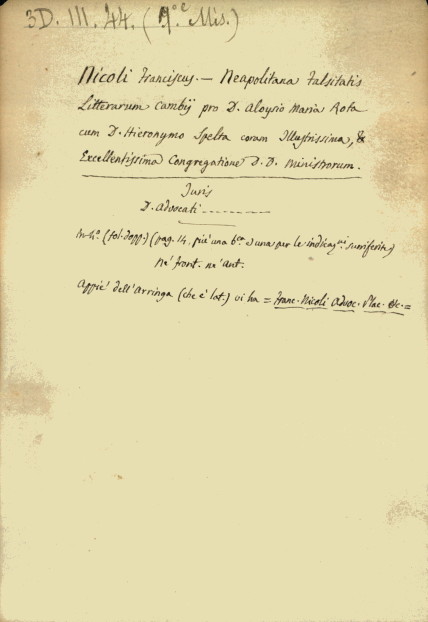 3D. III. 44. (N.º Mis.)
Nicoli Franciscus. — Neapolitana Falsitatis
Litterarum Cambij pro D. Aloysio Maria Rota
cum D. Hieronymo Spelta coram Illustrissima, &
Excellentissima Congregatione D. D. Ministrorum.
Juris
D. Advocati
In-4º (fol. dopp.) (pag. 14. più una b.ca e una per le surriferite)
Nè front. nè ant.
Appiè dell'Arringa (che è lat.) vi ha = Franc. Nicoli Advoc. Plac. &c. =